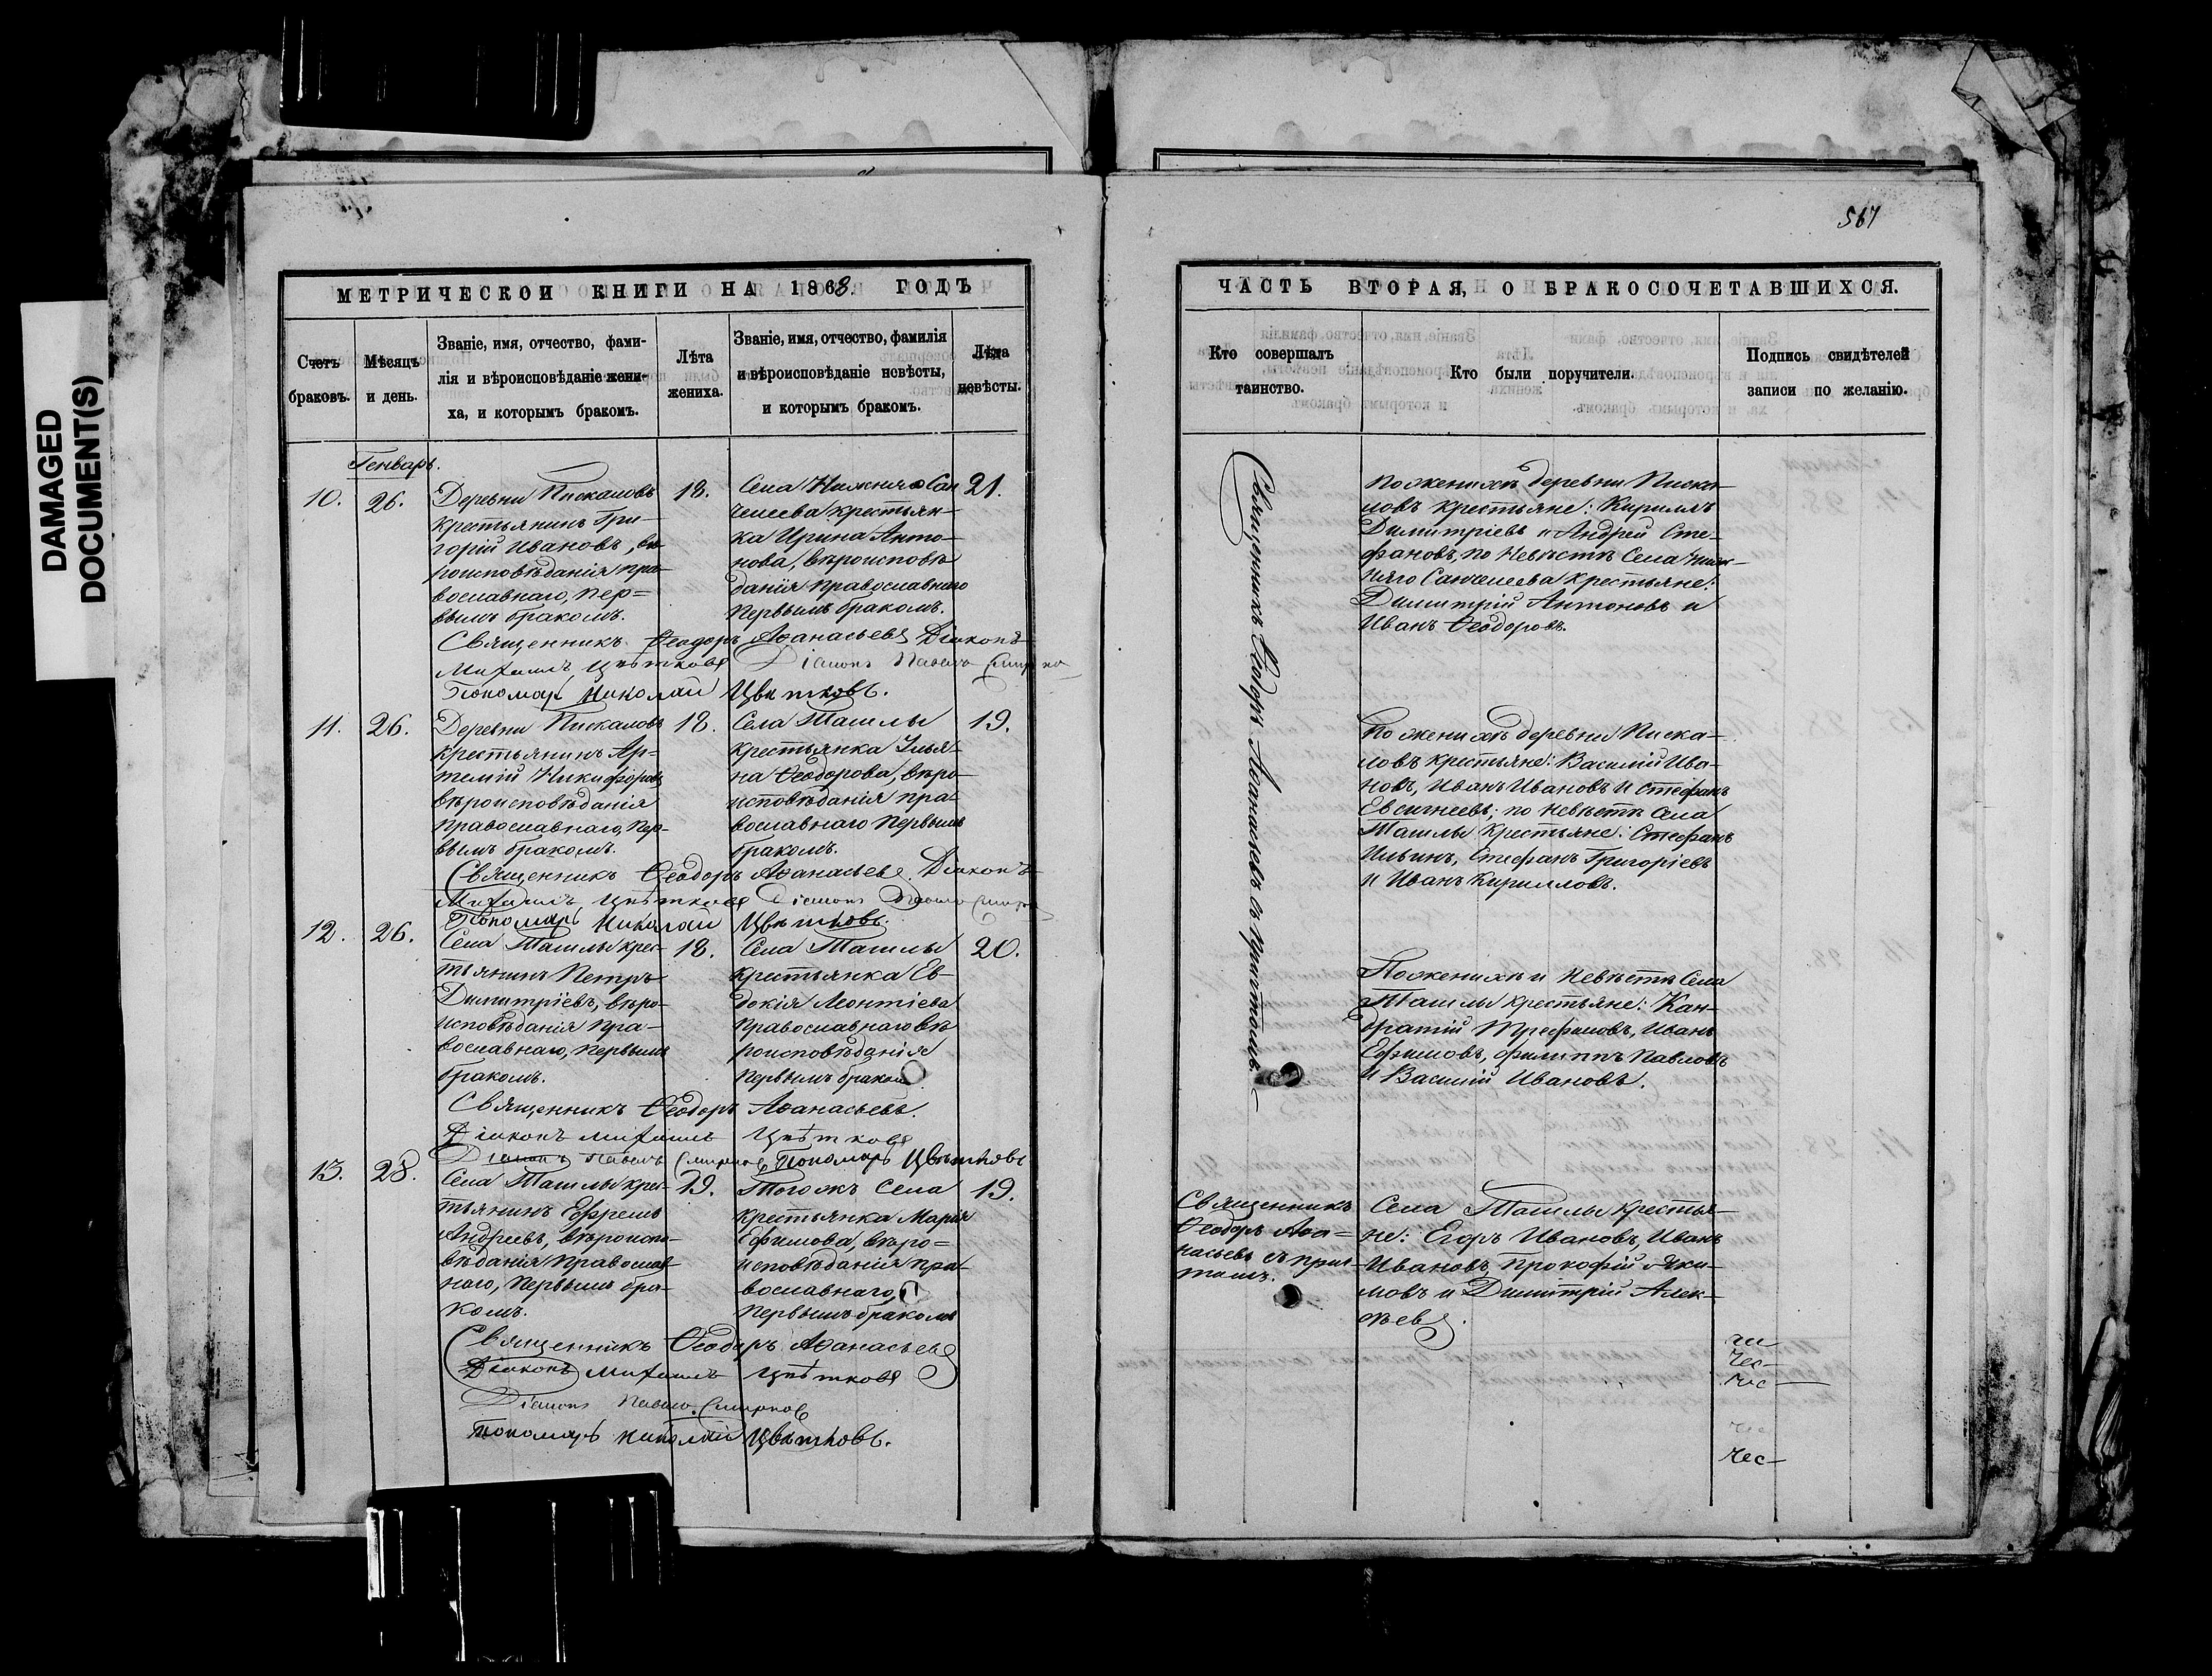 DAMAGED
DOCUMENT(S)
МЕТРИЧЕСКОЙ КНИГИ НА 1868. ГОДЪ
Счетъ браковъ.
Мѣсяцъ и день.
Званіе, имя, отчество, фами-
лія и вѣроисповѣданіе жени-
ха, и которымъ бракомъ.
Лѣта
жениха.
Званіе, имя, отчество, фамилія
и вѣроисповѣданіе невѣсты,
и которымъ бракомъ.
Лѣта
невѣсты.
Генварь.
10. 26.
Деревни Пискаловъ
крестьянинъ Гри-
горій Ивановъ, вѣ
роисповѣданія пра-
вославнаго, пер=
вымъ бракомъ.
18.
Села Нижняго Сан
челеева крестьян-
ка Ирина Анто-
нова, вѣроисповѣ
данія православнаго
первымъ бракомъ.
21.
Священникъ Ѳеодоръ Аѳанасьевъ Діаконъ
Михаилъ Цвѣтковъ Діаконъ Павелъ Смирно
Пономарь Николай Цвѣтковъ.
11. 26.
Деревни Пискаловъ
крестьянинъ Ар=
темій Никифоровъ
вѣроисповѣданія
православнаго, пер-
вымъ бракомъ.
18.
Села Ташлы
крестьянка Улья-
на Ѳеодорова, вѣро-
исповѣданія пра-
вославнаго первымъ
бракомъ.
19.
Священникъ Ѳеодоръ Аѳанасьевъ. Діаконъ
Михаилъ Цвѣтковъ Діаконъ Павелъ Смирно
Пономарь Николай Цвѣтковъ.
12. 26.
Села Ташлы крес-
тьянинъ Петръ
Димитріевъ, вѣро-
исповѣданія пра-
вославнаго, первымъ
бракомъ.
18.
Села Ташлы
крестьянка Ев-
докія Леонтіева
православнаго вѣ
роисповѣданія
первымъ бракомъ.
20.
Священникъ Ѳеодоръ Аѳанасьевъ.
Діаконъ Михаилъ Цвѣтковъ
Діаконъ Павелъ Смирновъ Пономарь Цвѣтковъ
13. 28.
Села Ташлы крес-
тьянинъ Ефремъ
Андреевъ, вѣроиспо-
вѣданія православ-
наго, первымъ бра-
комъ.
19.
Тогожъ села
крестьянка Марія
Ефимова, вѣро=
исповѣданія пра-
вославнаго,
первымъ бракомъ
19.
Священникъ Ѳеодоръ Аѳанасьевъ
Діаконъ Михаилъ Цвѣтковъ
Діаконъ Павелъ Смирновъ
Пономарь Николай Цвѣтковъ.
567
ЧАСТЬ ВТОРАЯ, О БРАКОСОЧЕТАВШИХСЯ.
Кто совершалъ
таинство.
Кто были поручители.
Подпись свидѣтелей
записи по желанію.
Священникъ Ѳеодоръ Аѳанасьевъ съ причтомъ.
По женихѣ деревни Писка-
ловъ крестьяне: Кириллъ
Димитріевъ и Андрей Сте-
фановъ, по невѣстѣ Села Ниж-
няго Санчелеева крестьяне:
Димитрій Антоновъ и
Иванъ Ѳеодоровъ.
По женихѣ деревни Писка-
ловъ крестьяне: Василій Ива-
новъ, Иванъ Ивановъ и Стефанъ
Евсигнеевъ; по невѣстѣ Села
Ташлы крестьяне: Стефанъ
Ильинъ, Стефанъ Григоріевъ
и Иванъ Кирилловъ.
По женихѣ и невѣстѣ Села
Ташлы крестьяне: Кан-
дратій Трефиловъ, Иванъ
Ефимовъ, Филиппъ Павловъ
и Василій Ивановъ.
Священникъ
Ѳеодоръ Аѳа=
насьевъ съ прич-
томъ.
Села Ташлы крестья-
не: Егоръ Ивановъ, Иванъ
Ивановъ, Прокофій Яки-
мовъ и Димитрій Алек-
сѣевъ.